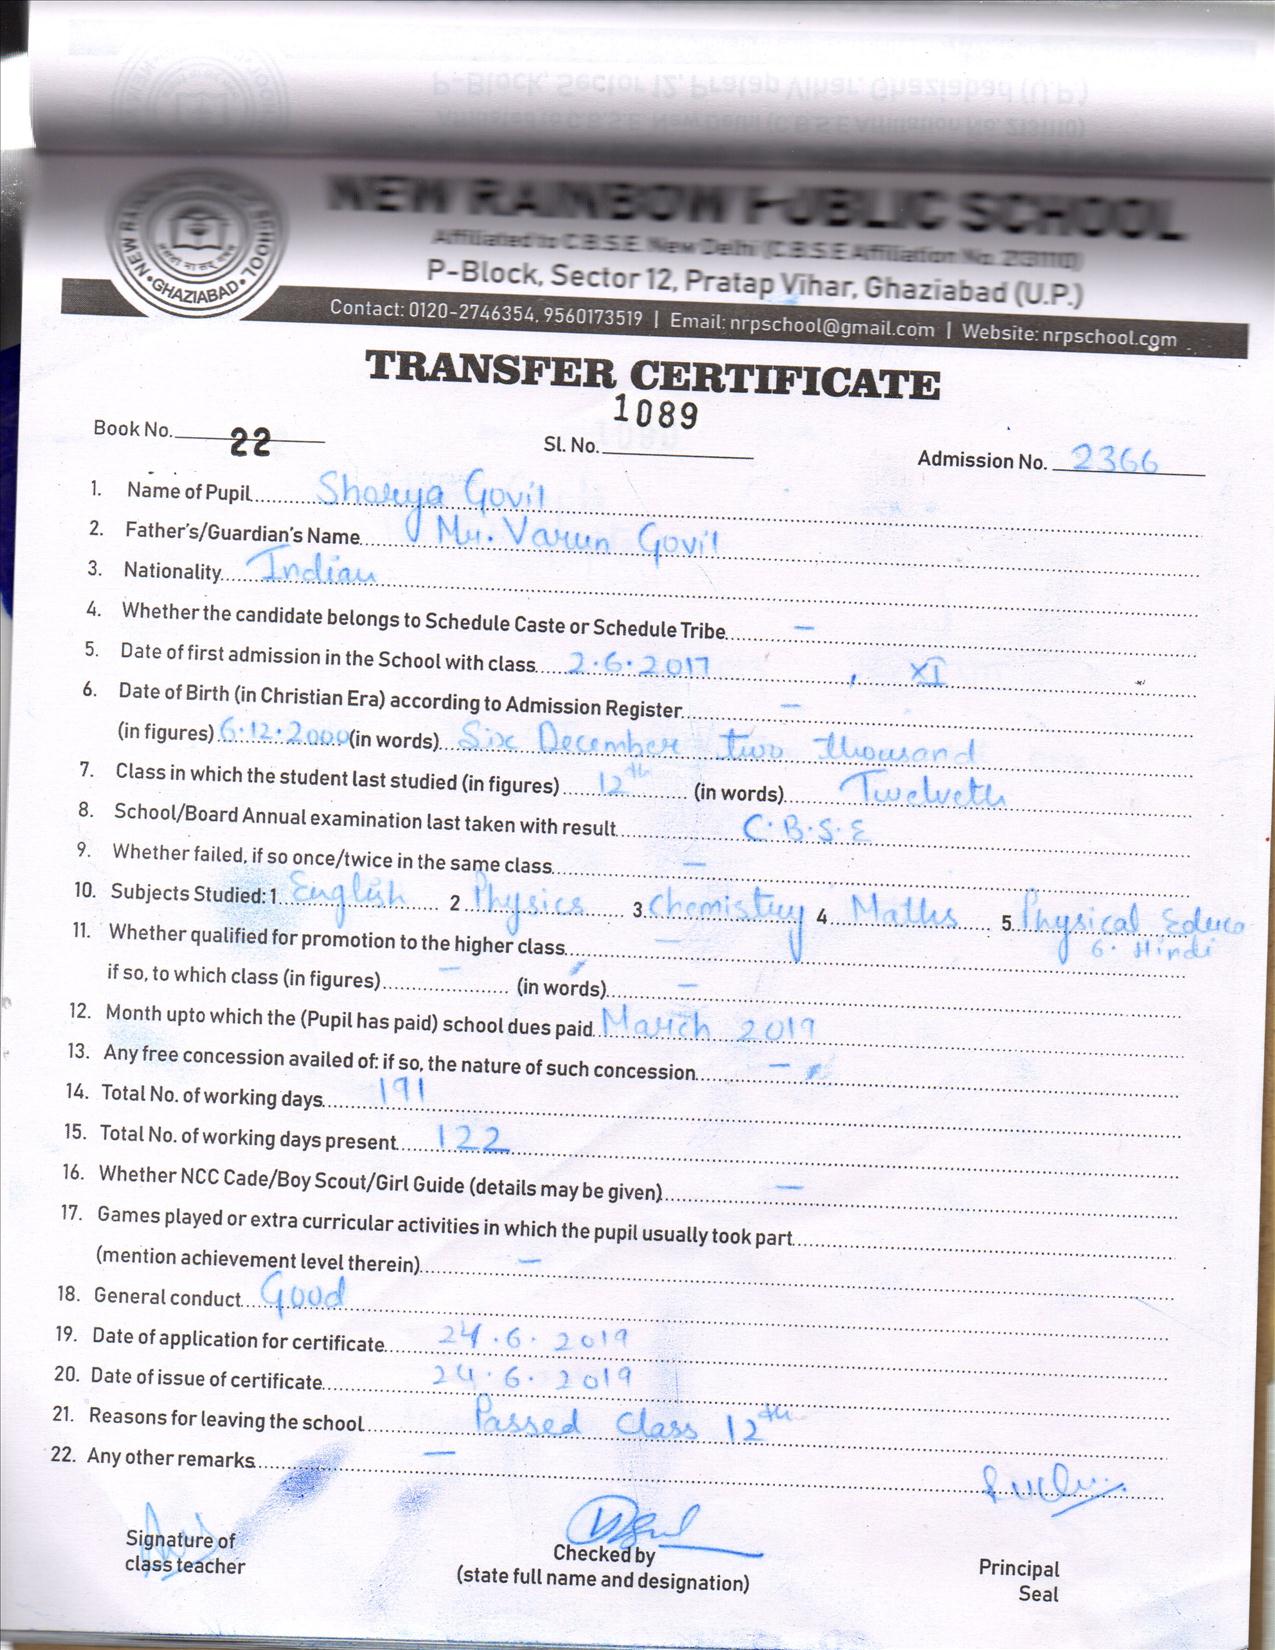 P-Block, Sector 12, Pratap Vihar, Ghaziabad (U.P.)
Affiliated to C.B.S.E. New Delhi (C.B.S.E Affiliation No. 2131110)
NEW RAINBOW PUBLIC SCHOOL
GHAZIABAD
NEW RAINBOW PUBLIC SCHOOL
Affiliated to C.B.S.E. New Delhi (C.B.S.E Affiliation No. 2131110)
P-Block, Sector 12, Pratap Vihar, Ghaziabad (U.P.)
Contact: 0120-2746354, 9560173519 | Email: nrpschool@gmail.com | Website: nrpschool.com
TRANSFER CERTIFICATE
Book No. 22 Sl. No. 1089 Admission No. 2366
1. Name of Pupil Shaurya Govil
2. Father's/Guardian's Name Mr. Varun Govil
3. Nationality Indian
4. Whether the candidate belongs to Schedule Caste or Schedule Tribe –
5. Date of first admission in the School with class 2.6.2017, XI
6. Date of Birth (in Christian Era) according to Admission Register –
(in figures) 6.12.2000 (in words) Six December two thousand
7. Class in which the student last studied (in figures) 12th (in words) Twelveth
8. School/Board Annual examination last taken with result C.B.S.E
9. Whether failed, if so once/twice in the same class –
10. Subjects Studied: 1 English 2 Physics 3 Chemistry 4 Maths 5. Physical Educa
6. Hindi
11. Whether qualified for promotion to the higher class –
if so, to which class (in figures) – (in words) –
12. Month upto which the (Pupil has paid) school dues paid March 2019
13. Any free concession availed of: if so, the nature of such concession –
14. Total No. of working days 191
15. Total No. of working days present 122
16. Whether NCC Cade/Boy Scout/Girl Guide (details may be given) –
17. Games played or extra curricular activities in which the pupil usually took part
(mention achievement level therein) –
18. General conduct Good
19. Date of application for certificate 24.6.2019
20. Date of issue of certificate 24.6.2019
21. Reasons for leaving the school Passed Class 12th
22. Any other remarks –
Signature of
class teacher
Checked by
(state full name and designation)
Principal
Seal